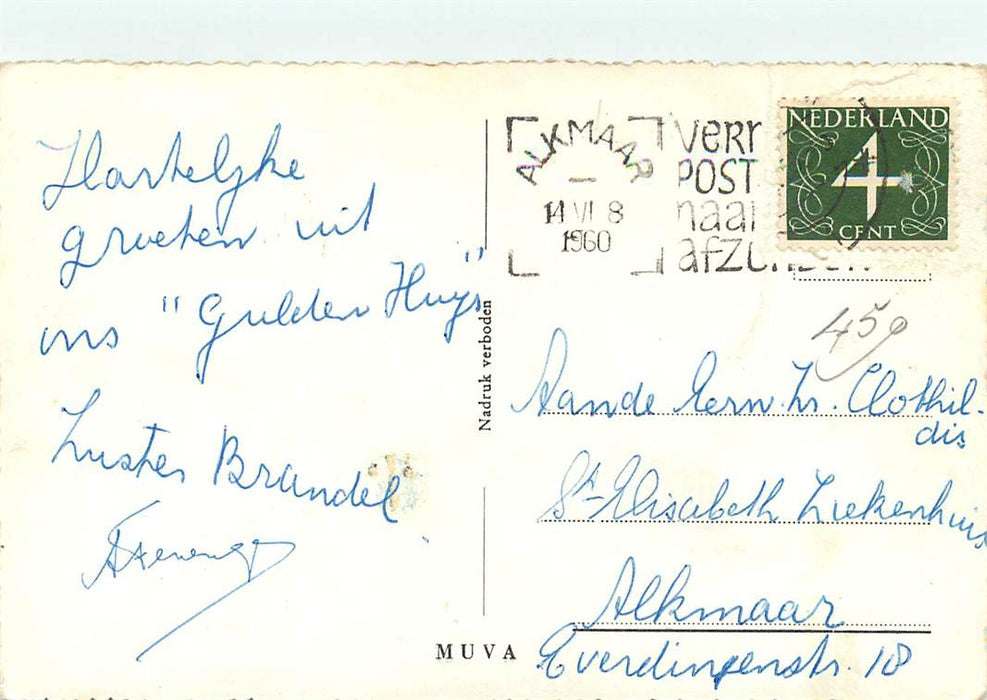 Hartelijke
groeten uit
ons "Gulden Huys"
Zuster Brandel
Nadruk verboden
MUVA
ALKMAAR
14 VI 8
1960
VERR
POST
naar
afzenden
NEDERLAND
4
CENT
45
Aan de Eerw. Zr. Clothil-
dis
St-Elisabeth Ziekenhuis
Alkmaar
Everdingenstr. 18